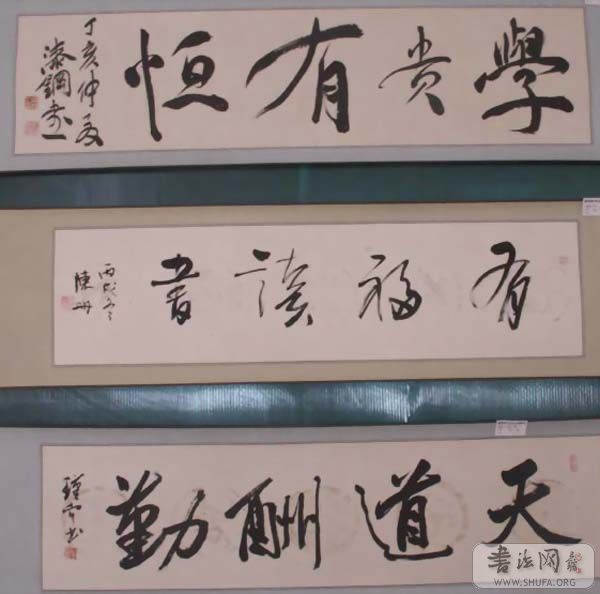 學貴有恒
丁亥仲夏
漆鋼書
有福讀書
丙戌冬
陳冊
天道酬勤
書法网
WWW.SHUFA.ORG